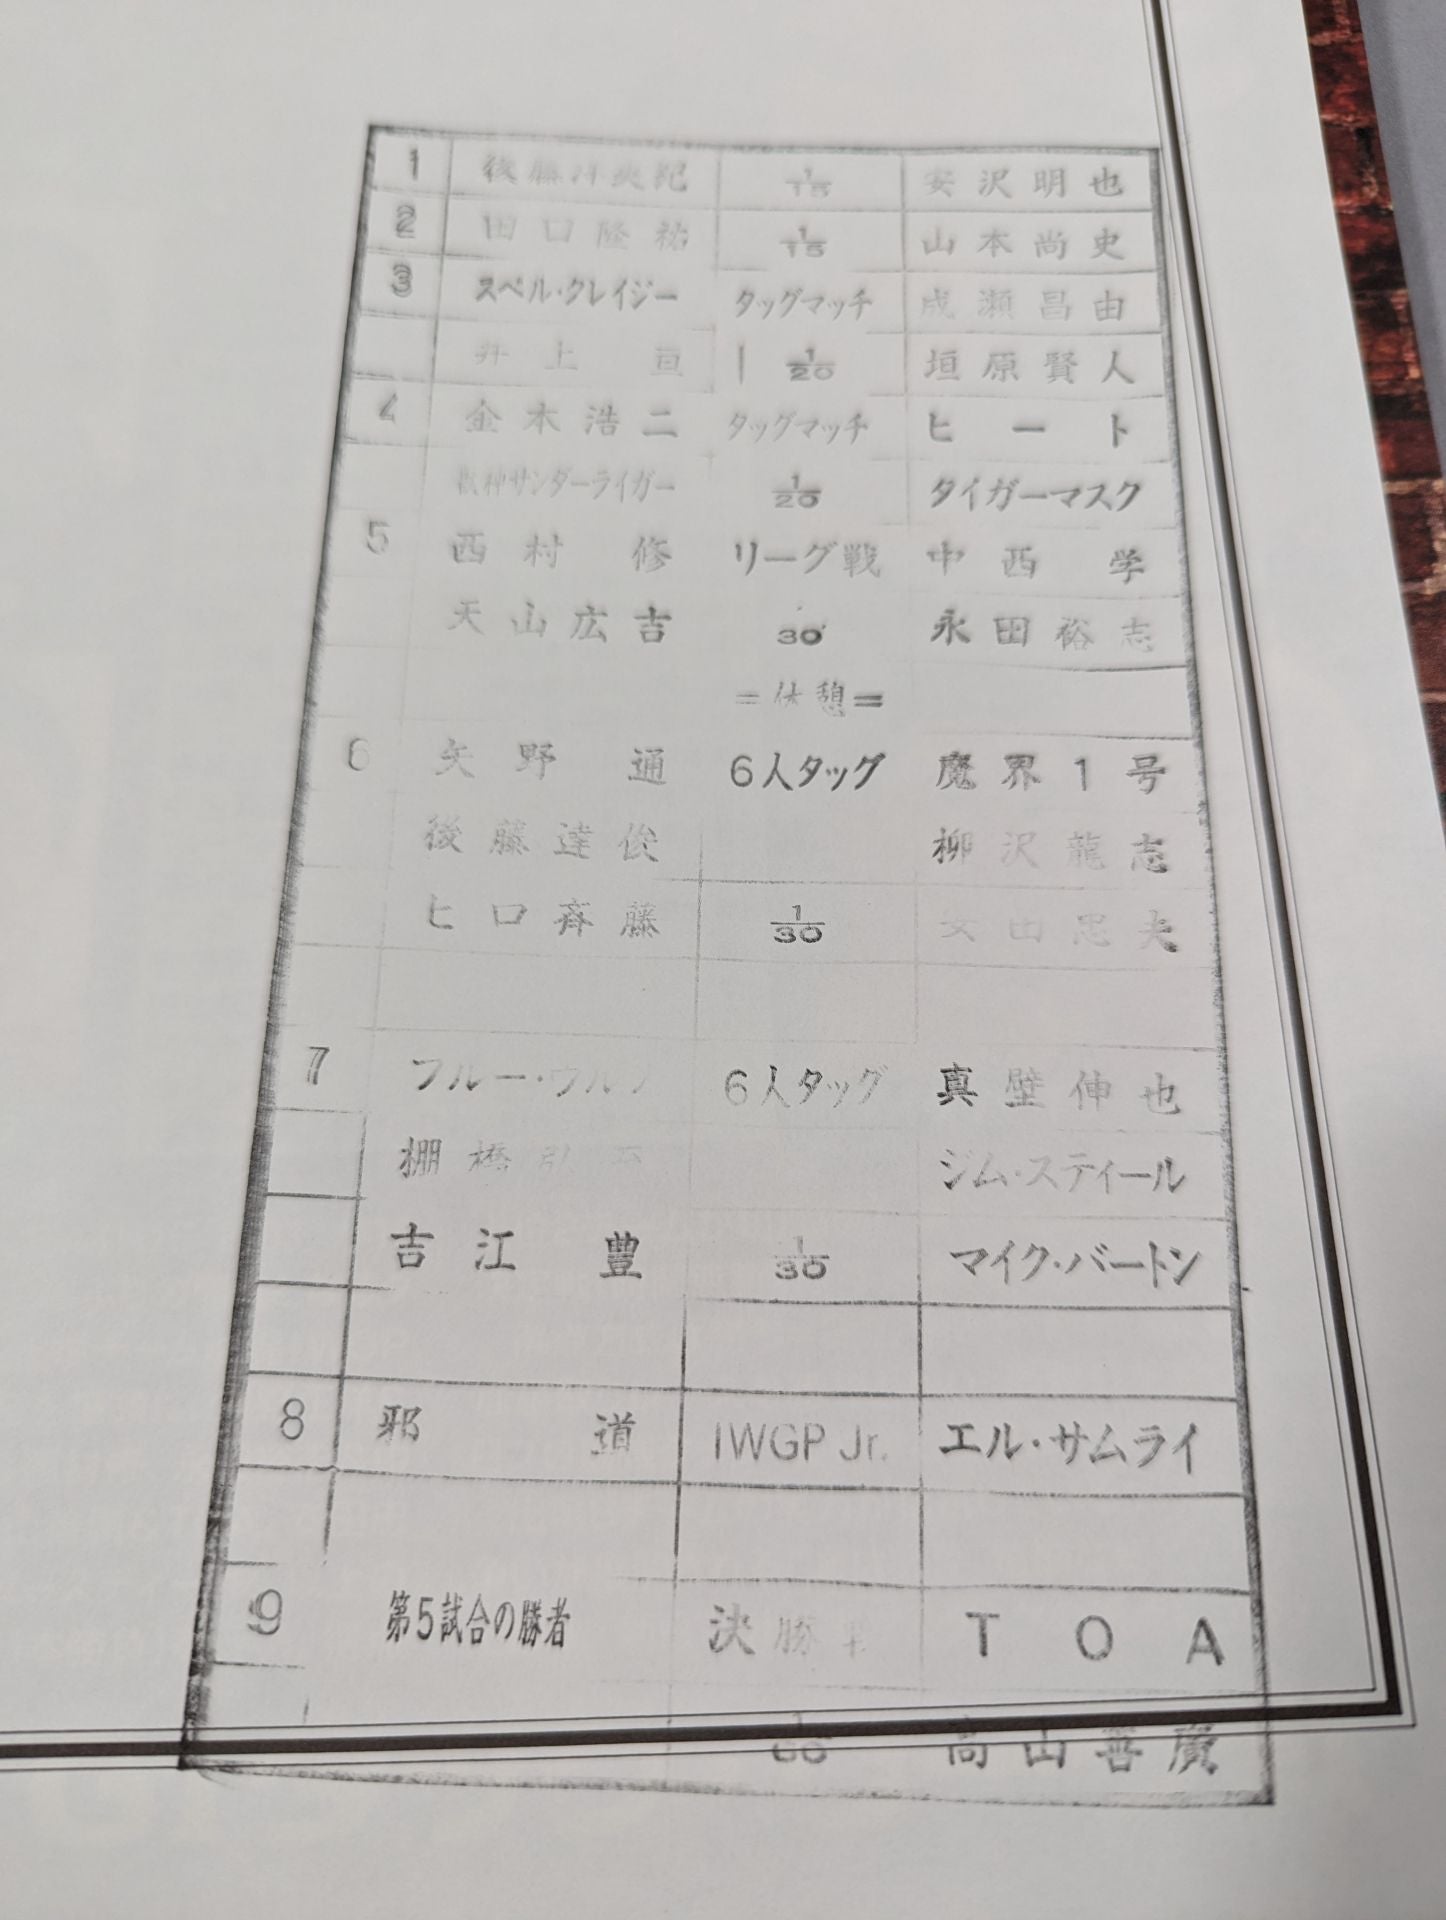 1 後藤洋央紀 1/15 安沢明也
2 田口隆祐 1/15 山本尚史
3 スペル・クレイジー タッグマッチ 成瀬昌由
井上亘 1/20 垣原賢人
4 金本浩二 タッグマッチ ヒート
獣神サンダーライガー 1/20 タイガーマスク
5 西村修 リーグ戦 中西学
天山広吉 30' 永田裕志
=休憩=
6 矢野通 6人タッグ 魔界1号
後藤達俊 柳沢龍志
ヒロ斉藤 1/30 安田忠夫
7 ブルー・ウルフ 6人タッグ 真壁伸也
棚橋弘至 ジム・スティール
吉江豊 1/30 マイク・バートン
8 邪道 IWGP Jr. エル・サムライ
9 第5試合の勝者 決勝 TOA
1/60 高山善廣